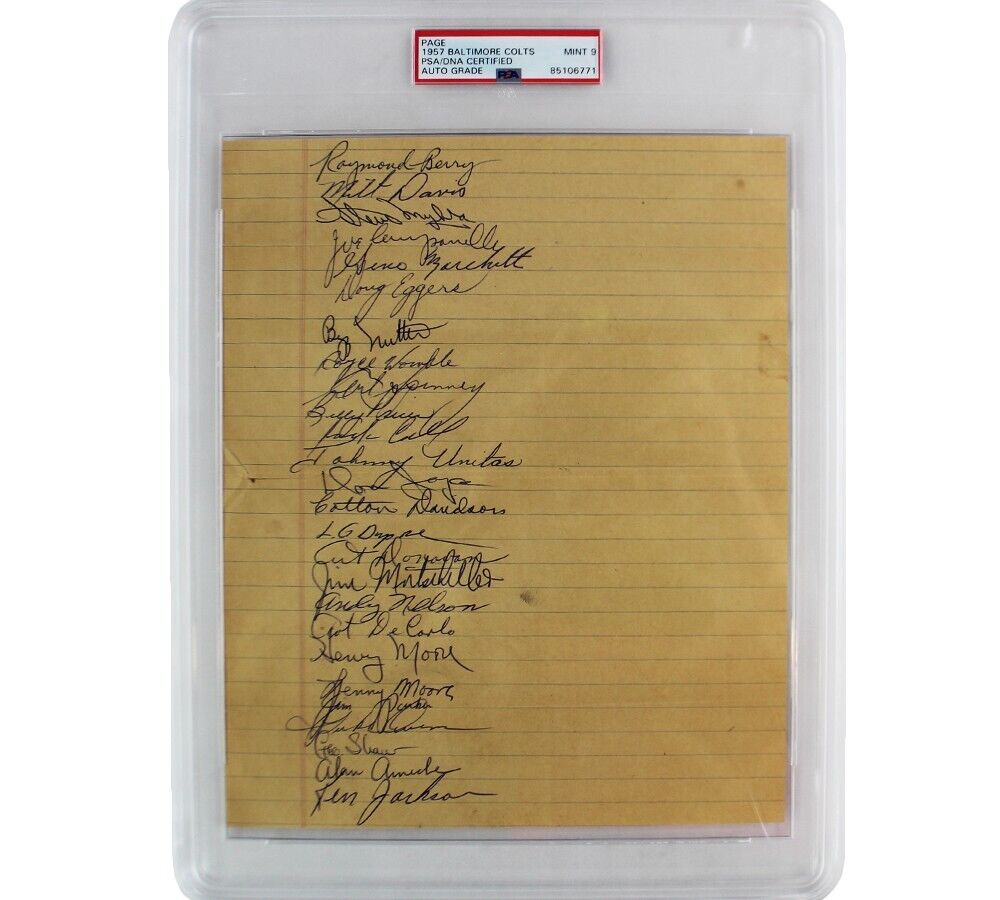 PAGE
1957 BALTIMORE COLTS MINT 9
PSA/DNA CERTIFIED
AUTO GRADE PSA 85106771
Raymond Berry
Milt Davis
Steve Myhra
Joe Campanella
Gino Marchetti
Doug Eggers
Buzz Nutter
Royce Womble
Bert Rechichar
Billy Pricer
Jack Call
Johnny Unitas
Don Joyce
Cotton Davidson
L G Dupre
Art Donovan
Jim Mutscheller
Andy Nelson
Art De Carlo
Henry Moore
Lenny Moore
Jim Parker
Geo. Shaw
Alan Ameche
Ken Jackson